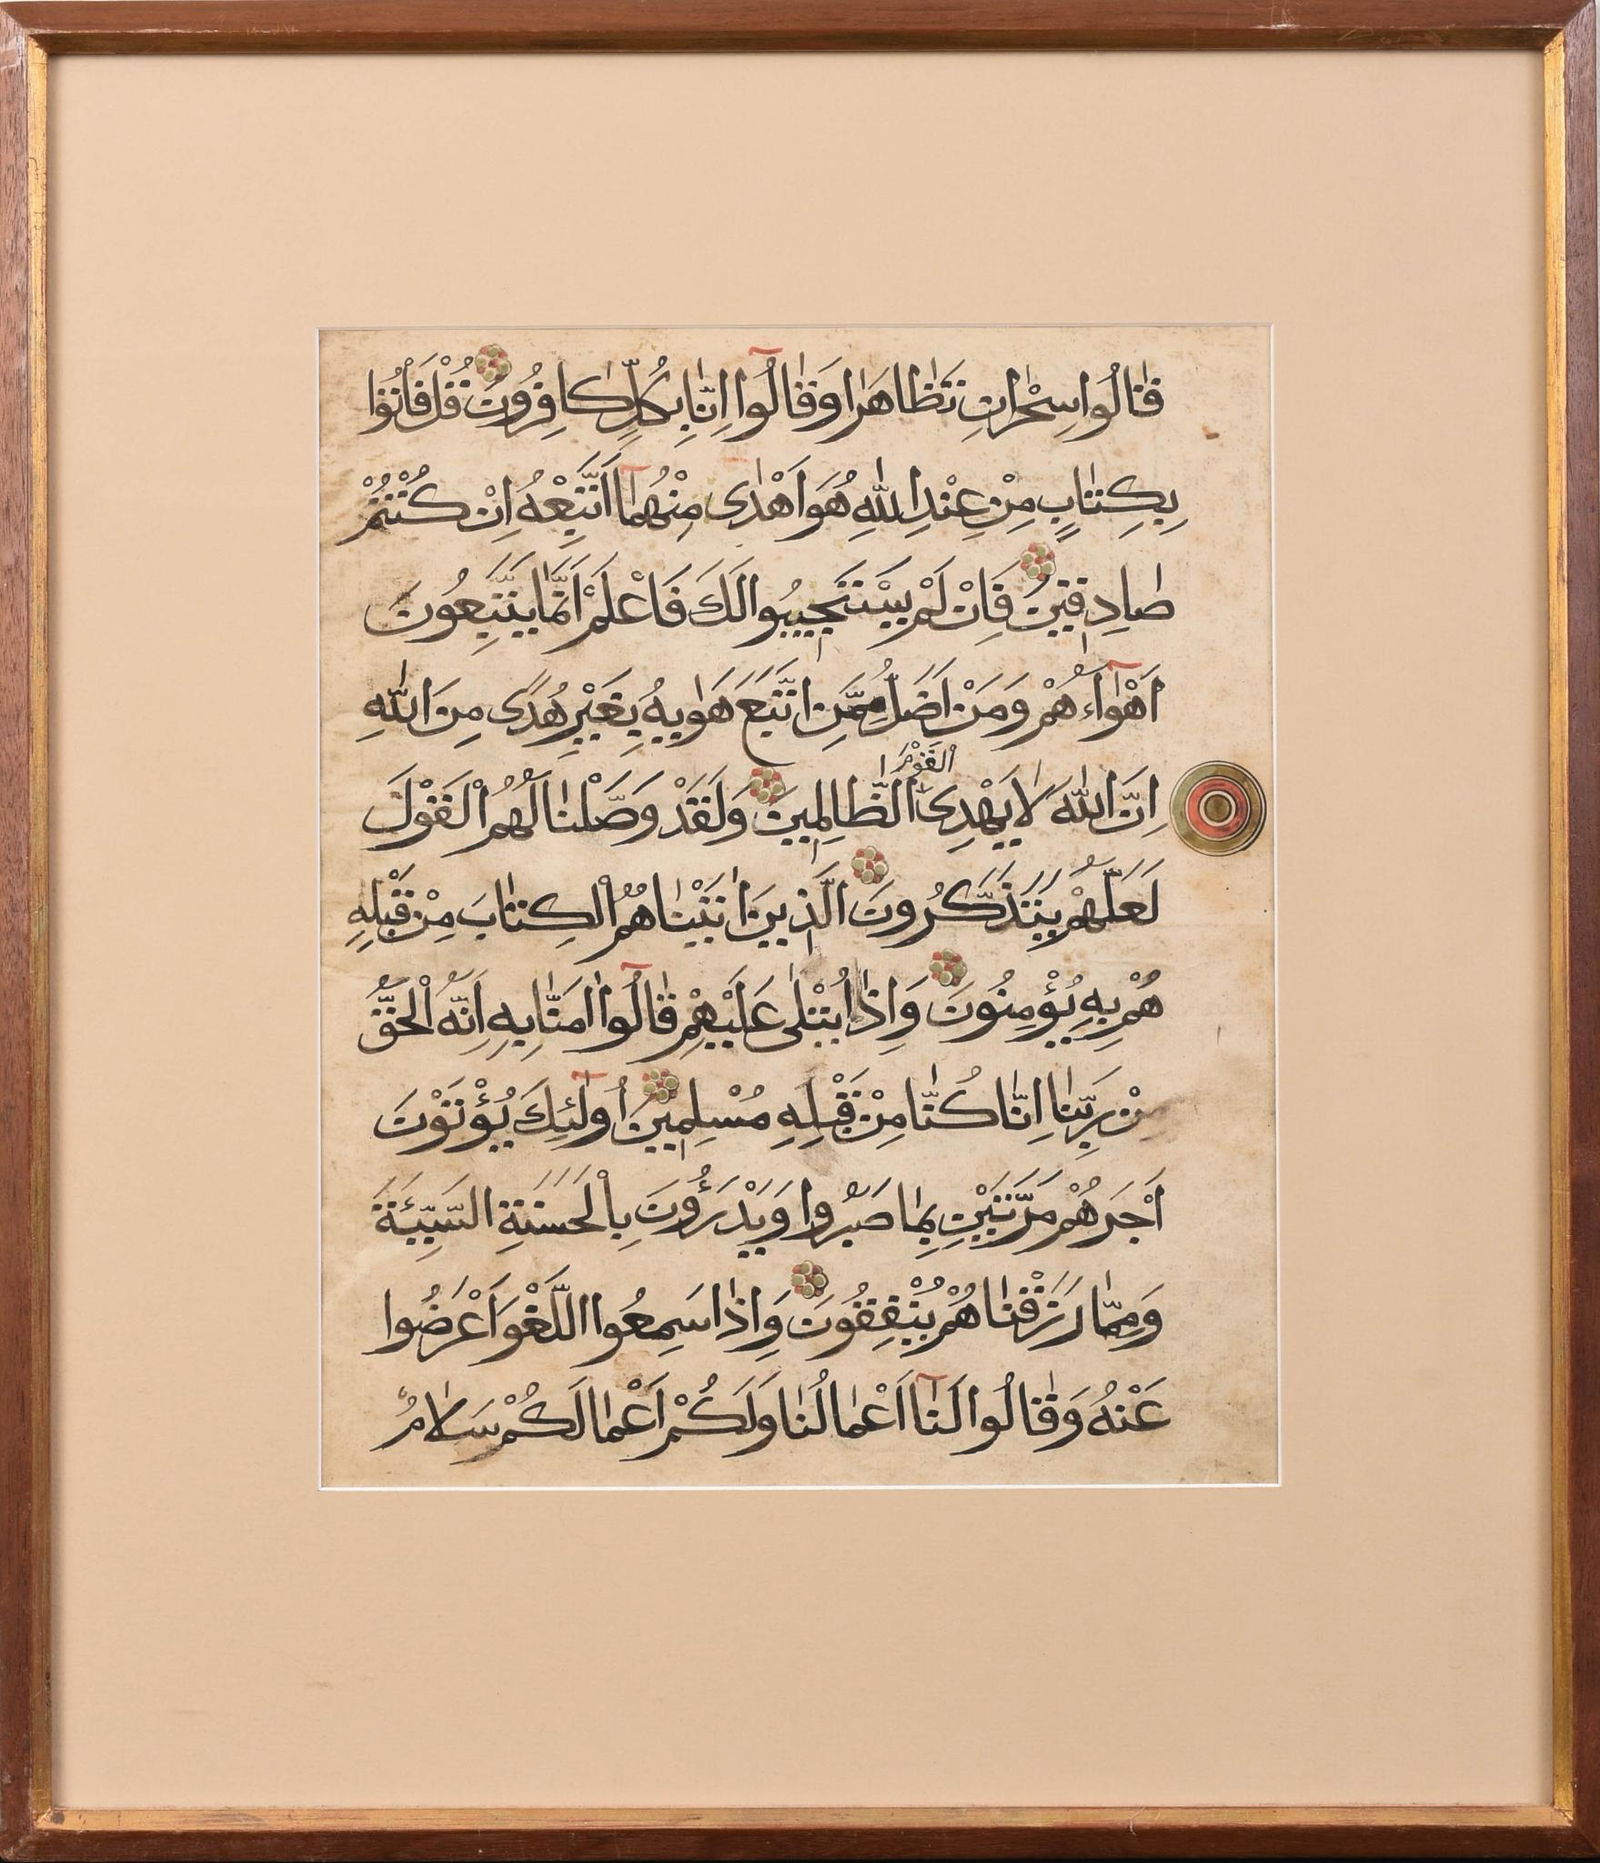 قَالُوا سِحْرَانِ تَظَاهَرَا وَقَالُوا إِنَّا بِكُلٍّ كَافِرُونَ قُلْ فَأْتُوا
بِكِتَابٍ مِنْ عِنْدِ اللَّهِ هُوَ أَهْدَى مِنْهُمَا أَتَّبِعْهُ إِنْ كُنْتُمْ
صَادِقِينَ فَإِنْ لَمْ يَسْتَجِيبُوا لَكَ فَاعْلَمْ أَنَّمَا يَتَّبِعُونَ
أَهْوَاءَهُمْ وَمَنْ أَضَلُّ مِمَّنِ اتَّبَعَ هَوٰيهُ بِغَيْرِ هُدًى مِنَ اللَّهِ
إِنَّ اللَّهَ لَا يَهْدِي الْقَوْمَ الظَّالِمِينَ وَلَقَدْ وَصَّلْنَا لَهُمُ الْقَوْلَ
لَعَلَّهُمْ يَتَذَكَّرُونَ الَّذِينَ اٰتَيْنَاهُمُ الْكِتَابَ مِنْ قَبْلِهِ
هُمْ بِهِ يُؤْمِنُونَ وَإِذَا يُتْلَى عَلَيْهِمْ قَالُوا اٰمَنَّا بِهِ إِنَّهُ الْحَقُّ
مِنْ رَبِّنَا إِنَّا كُنَّا مِنْ قَبْلِهِ مُسْلِمِينَ أُولَٰئِكَ يُؤْتَوْنَ
أَجْرَهُمْ مَرَّتَيْنِ بِمَا صَبَرُوا وَيَدْرَؤُنَ بِالْحَسَنَةِ السَّيِّئَةَ
وَمِمَّا رَزَقْنَاهُمْ يُنْفِقُونَ وَإِذَا سَمِعُوا اللَّغْوَ أَعْرَضُوا
عَنْهُ وَقَالُوا لَنَا أَعْمَالُنَا وَلَكُمْ أَعْمَالُكُمْ سَلَامٌ